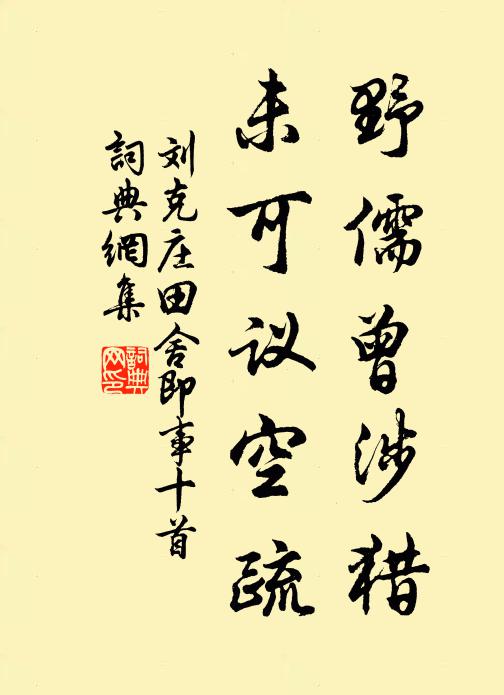 野儒曾涉猎
未可议空疏
刘克庄田舍即事十首
詞典網集
詞典网印